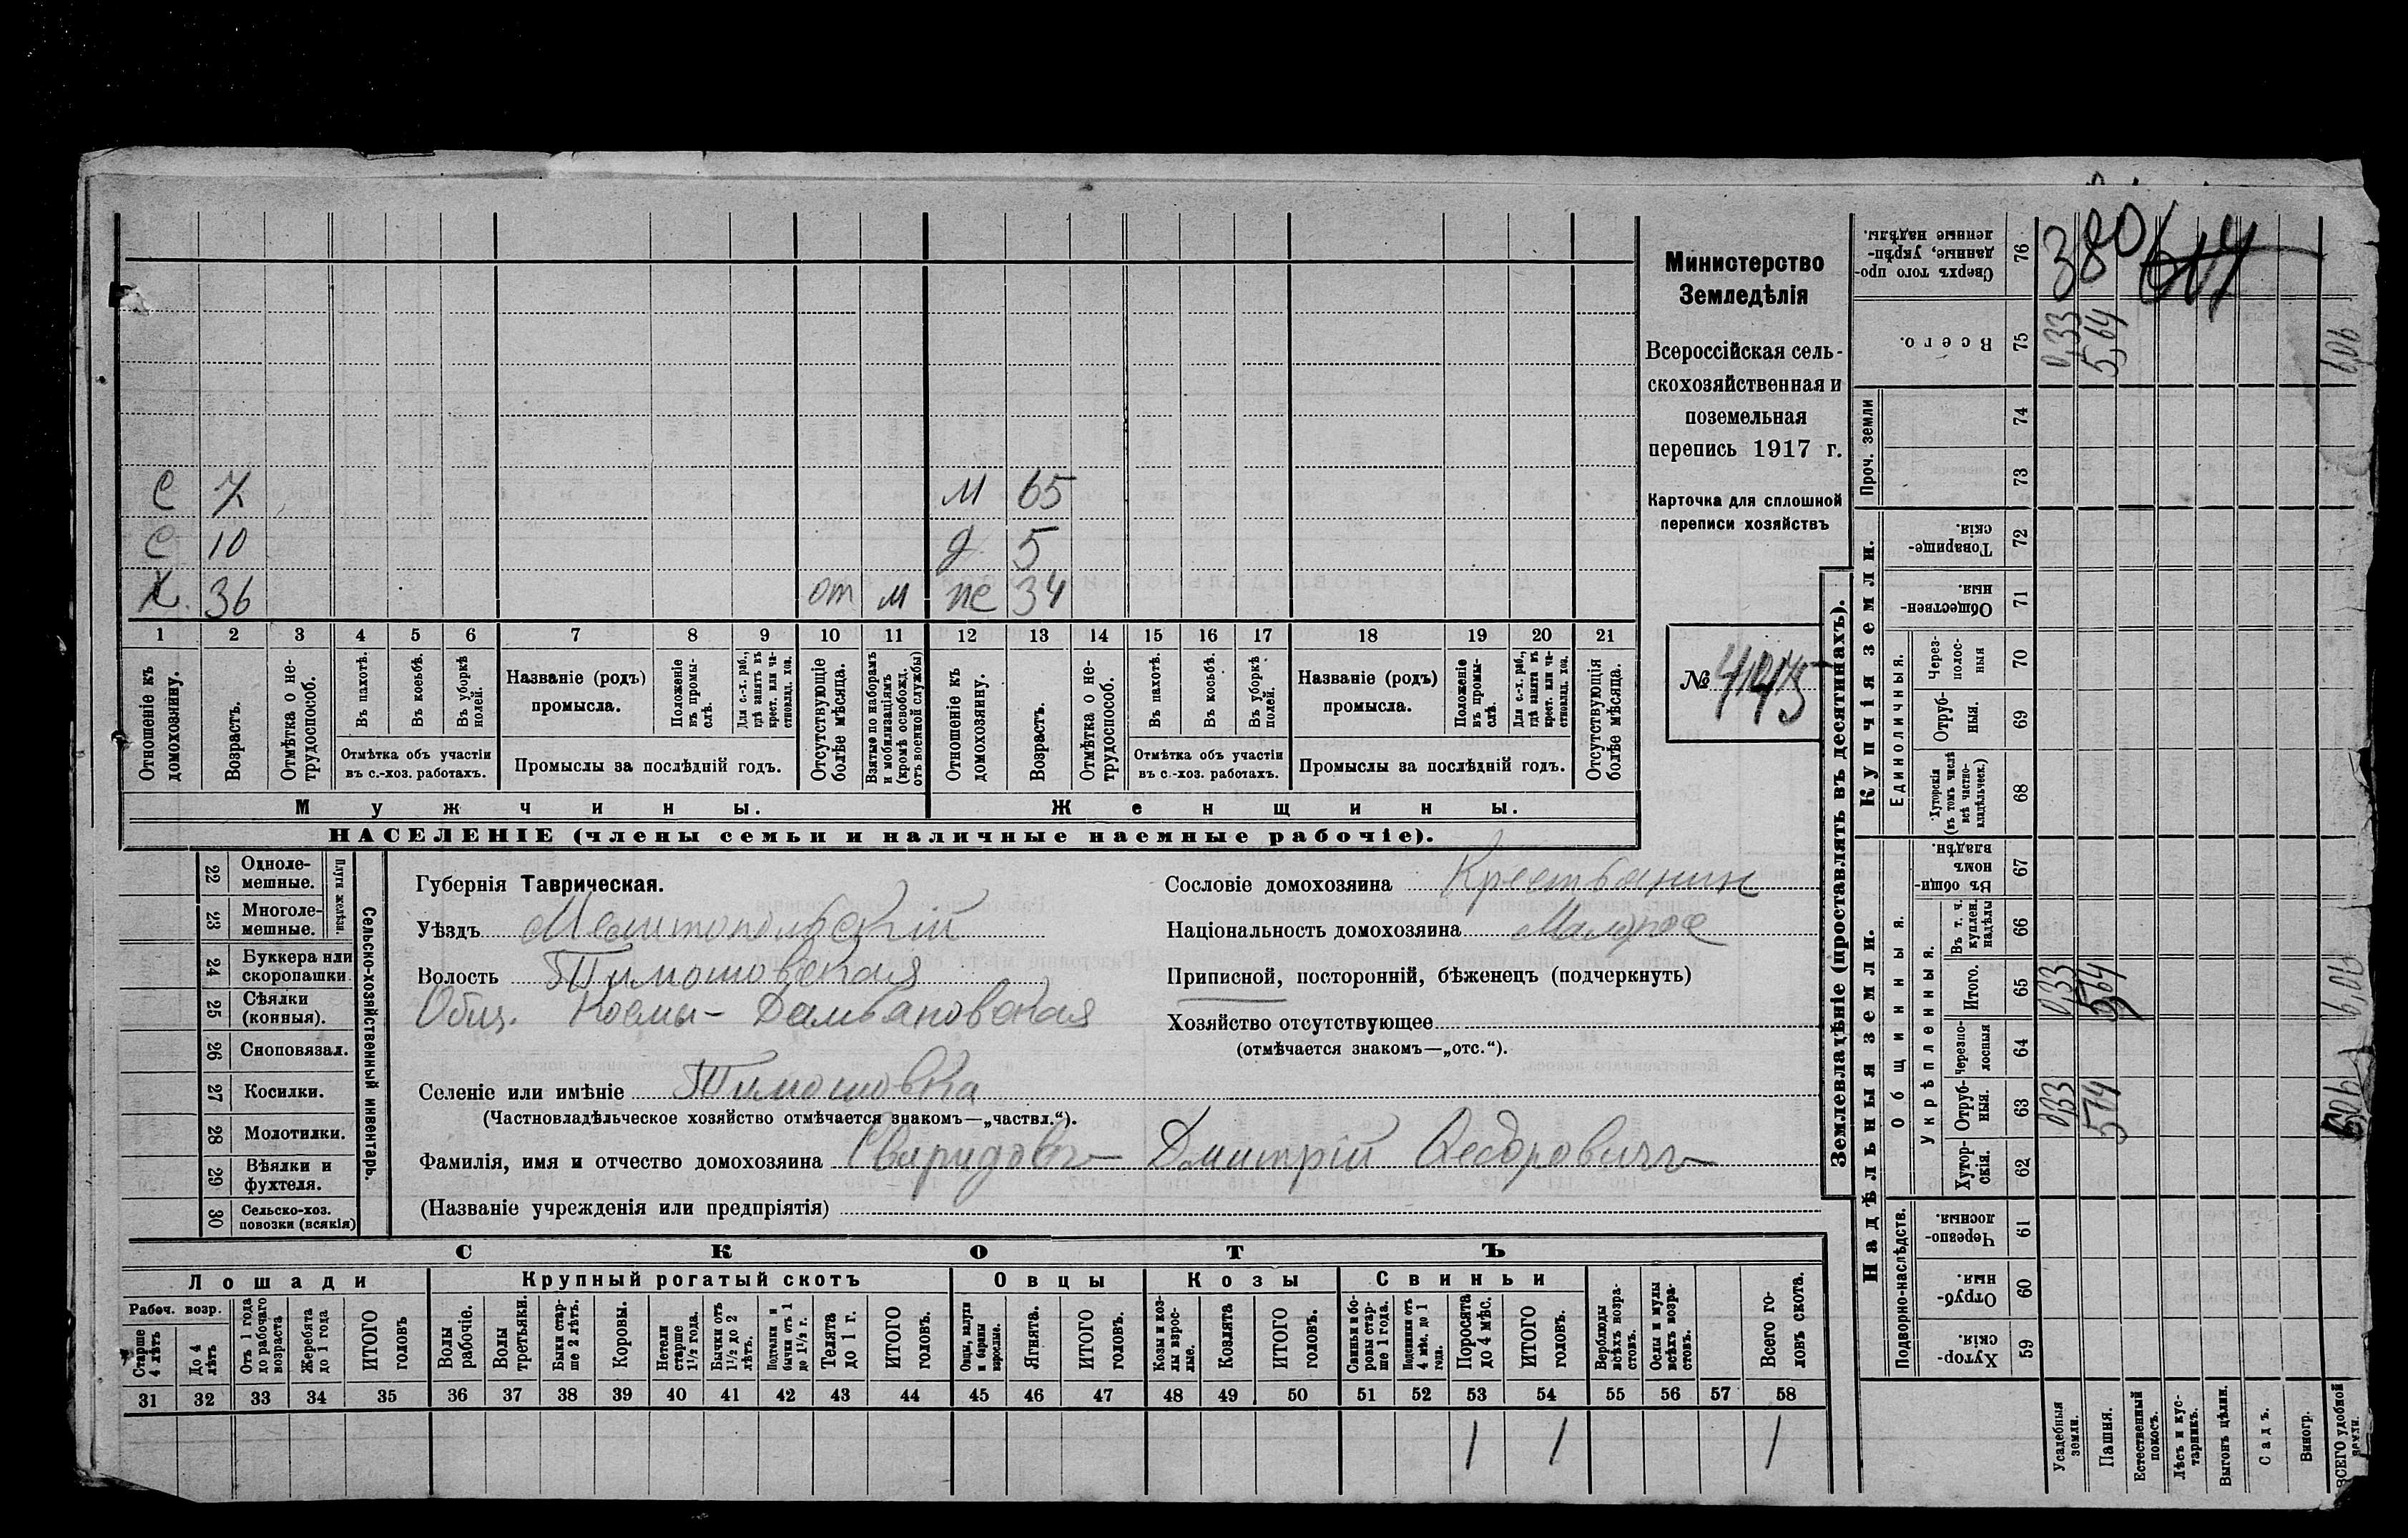 С 7 М 65
С 10 Д 5
Х. 36 от м же 34
1 2 3 4 5 6 7 8 9 10 11 12 13 14 15 16 17 18 19 20 21
Отношеніе къ домохозяину.
Возрастъ.
Отмѣтка о не-трудоспособ.
Въ пахотѣ.
Въ косьбѣ.
Въ уборкѣ полей.
Отмѣтка объ участіи
въ с.-хоз. работахъ.
Названіе (родъ)
промысла.
Положеніе въ промы-слѣ.
Для с.-х. раб., гдѣ занятъ въ крест. или ча-стновлад. хоз.
Промыслы за послѣдній годъ.
Отсутствующіе болѣе мѣсяца.
Взятые по наборамъ и мобилизаціямъ (кромѣ освобожд. отъ военной службы)
Отношеніе къ домохозяину.
Возрастъ.
Отмѣтка о не-трудоспособ.
Въ пахотѣ.
Въ косьбѣ.
Въ уборкѣ полей.
Отмѣтка объ участіи
въ с.-хоз. работахъ.
Названіе (родъ)
промысла.
Положеніе въ промы-слѣ.
Для с.-х. раб., гдѣ занята въ крест. или ча-стновлад. хоз.
Промыслы за послѣдній годъ.
Отсутствующія болѣе мѣсяца.
Мужчины. Женщины.
НАСЕЛЕНІЕ (члены семьи и наличные наемные рабочіе).
Министерство
Земледѣлія
Всероссійская сель-
скохозяйственная и
поземельная
перепись 1917 г.
Карточка для сплошной
переписи хозяйствъ
№
22 Одноле-мешные.
23 Многоле-мешные.
Плуги желѣзн.
24 Буккера или скоропашки.
25 Сѣялки (конныя).
26 Сноповязал.
27 Косилки.
28 Молотилки.
29 Вѣялки и фухтеля.
30 Сельско-хоз. повозки (всякія)
Сельско-хозяйственный инвентарь.
Губернія Таврическая.
Уѣздъ Мелитопольскій
Волость Тимошовская
Общ. Косьмы-Дамьановская
Селеніе или имѣніе Тимошовка
(Частновладѣльческое хозяйство отмѣчается знакомъ—„частвл.“).
Фамилія, имя и отчество домохозяина Свиридовъ Дмитрій Федоровичъ
(Названіе учрежденія или предпріятія)
Сословіе домохозяина Крестьянин
Національность домохозяина Малорос
Приписной, посторонній, бѣженецъ (подчеркнуть)
Хозяйство отсутствующее
(отмѣчается знакомъ—„отс.“).
СКОТЪ
Лошади Крупный рогатый скотъ Овцы Козы Свиньи
Рабоч. возр.
Старше 4 лѣтъ
До 4 лѣтъ
Отъ 1 года до рабочаго возраста
Жеребята до 1 года
ИТОГО головъ
Волы рабочіе.
Волы третьяки.
Быки стар-ше 2 лѣтъ.
Коровы.
Нетели старше 1½ года.
Бычки отъ 1½ до 2 лѣтъ.
Подтелки и бычки отъ 1 до 1½ г.
Телята до 1 г.
ИТОГО головъ.
Овцы, валухи и бараны взрослые.
Ягнята.
ИТОГО головъ.
Козы и коз-лы взрос-лые.
Козлята
ИТОГО головъ.
Свиньи и бо-ровы стар-ше 1 года.
Подсвинки отъ 4 мѣс. до 1 года.
Поросята до 4 мѣс.
ИТОГО головъ.
Верблюды всѣхъ возра-стовъ.
Ослы и мулы всѣхъ возра-стовъ.
Всего го-ловъ скота.
31 32 33 34 35 36 37 38 39 40 41 42 43 44 45 46 47 48 49 50 51 52 53 54 55 56 57 58
1 1 1
Землевладѣніе (проставлять въ десятинахъ).
Надѣльныя земли. Купчія земли. Проч. земли
Подворно-наслѣдств.
Общинныя.
Укрѣпленныя.
Единоличныя.
59 Хутор-скія.
60 Отруб-ныя.
61 Черезпо-лосныя.
62 Хутор-скія.
63 Отруб-ныя. 0,33
64 Черезпо-лосныя
65 Итого. 0,33 5,64
66 Въ т. ч. куплен. надѣлы
67 Въ общи-номъ владѣн.
68 Хуторскія (въ томъ числѣ всѣ частно-владѣльческ.)
69 Отруб-ныя.
70 Через-полос-ныя
71 Обществен-ныя.
72 Товарище-скія.
73
74
75 Всего. 0,33 5,64
76 Сверхъ того про-данные, укрѣп-ленные надѣлы.
380
Усадебныя земли.
Пашня.
Естественный покосъ.
Лѣсъ и кус-тарникъ.
Выгонъ цѣлин.
Садъ.
Виногр.
ВСЕГО удобной земли.